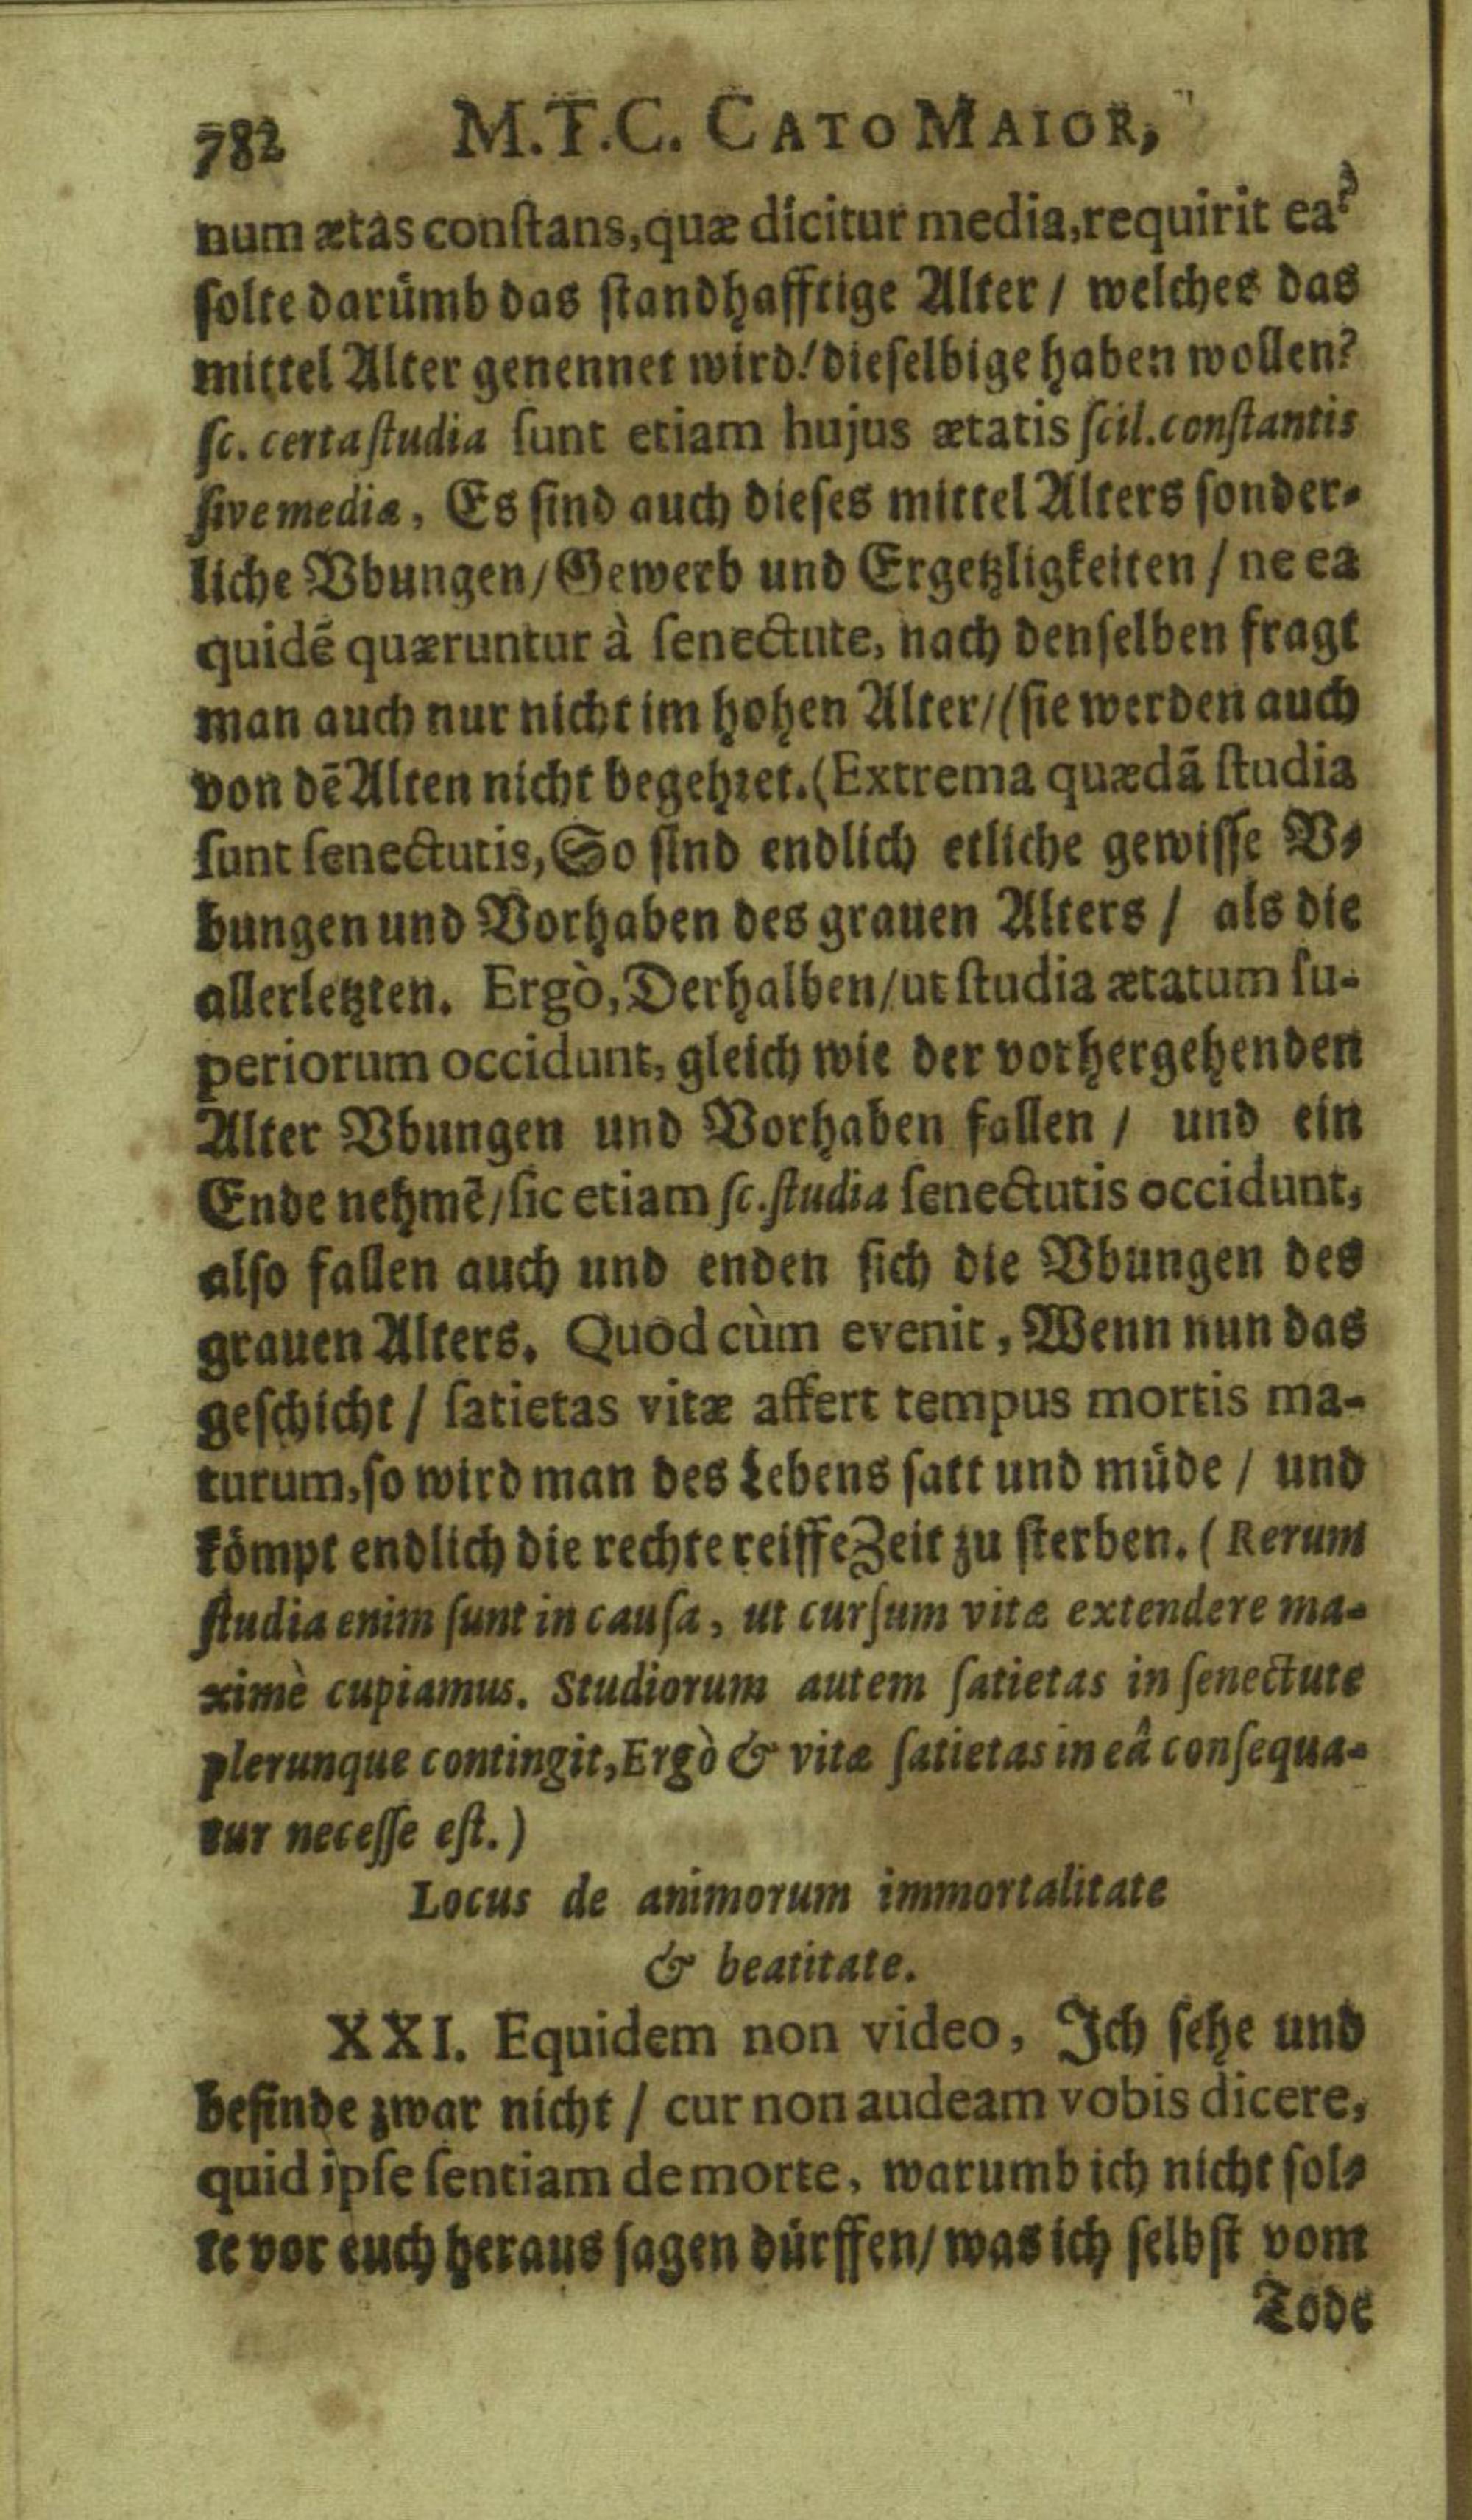 782 M.T.C. CATO MAIOR,
num ætas conſtans, quæ dicitur media, requirit ea?
ſolte darümb das ſtandhafftige Alter / welches das
mittel Alter genennet wird! dieſelbige haben wollen?
ſc. certa ſtudia ſunt etiam hujus ætatis ſcil. conſtantis
ſive mediæ, Es ſind auch dieſes mittel Alters ſonder-
liche Vbungen / Gewerb und Ergetzligkeiten / ne ea
quidē quæruntur à ſenectute, nach denſelben fragt
man auch nur nicht im hohen Alter / (ſie werden auch
von dē Alten nicht begehret. (Extrema quædā ſtudia
ſunt ſenectutis, So ſind endlich etliche gewiſſe V-
bungen und Vorhaben des grauen Alters / als die
allerletzten. Ergò, Derhalben / ut ſtudia ætatum ſu-
periorum occidunt, gleich wie der vorhergehenden
Alter Vbungen und Vorhaben fallen / und ein
Ende nehmē / ſic etiam ſc. ſtudia ſenectutis occidunt,
alſo fallen auch und enden ſich die Vbungen des
grauen Alters. Quod cùm evenit, Wenn nun das
geſchicht / ſatietas vitæ affert tempus mortis ma-
turum, ſo wird man des Lebens ſatt und müde / und
kömpt endlich die rechte reiffe Zeit zu ſterben. (Rerum
ſtudia enim ſunt in cauſa, ut curſum vitæ extendere ma-
ximè cupiamus. Studiorum autem ſatietas in ſenectute
plerunque contingit, Ergò & vitæ ſatietas in eâ conſequa-
tur neceſſe eſt.)
Locus de animorum immortalitate
& beatitate.
XXI. Equidem non video, Ich ſehe und
befinde zwar nicht / cur non audeam vobis dicere,
quid ipſe ſentiam de morte, warumb ich nicht ſol-
te vor euch heraus ſagen dürffen / was ich ſelbſt vom
Tode